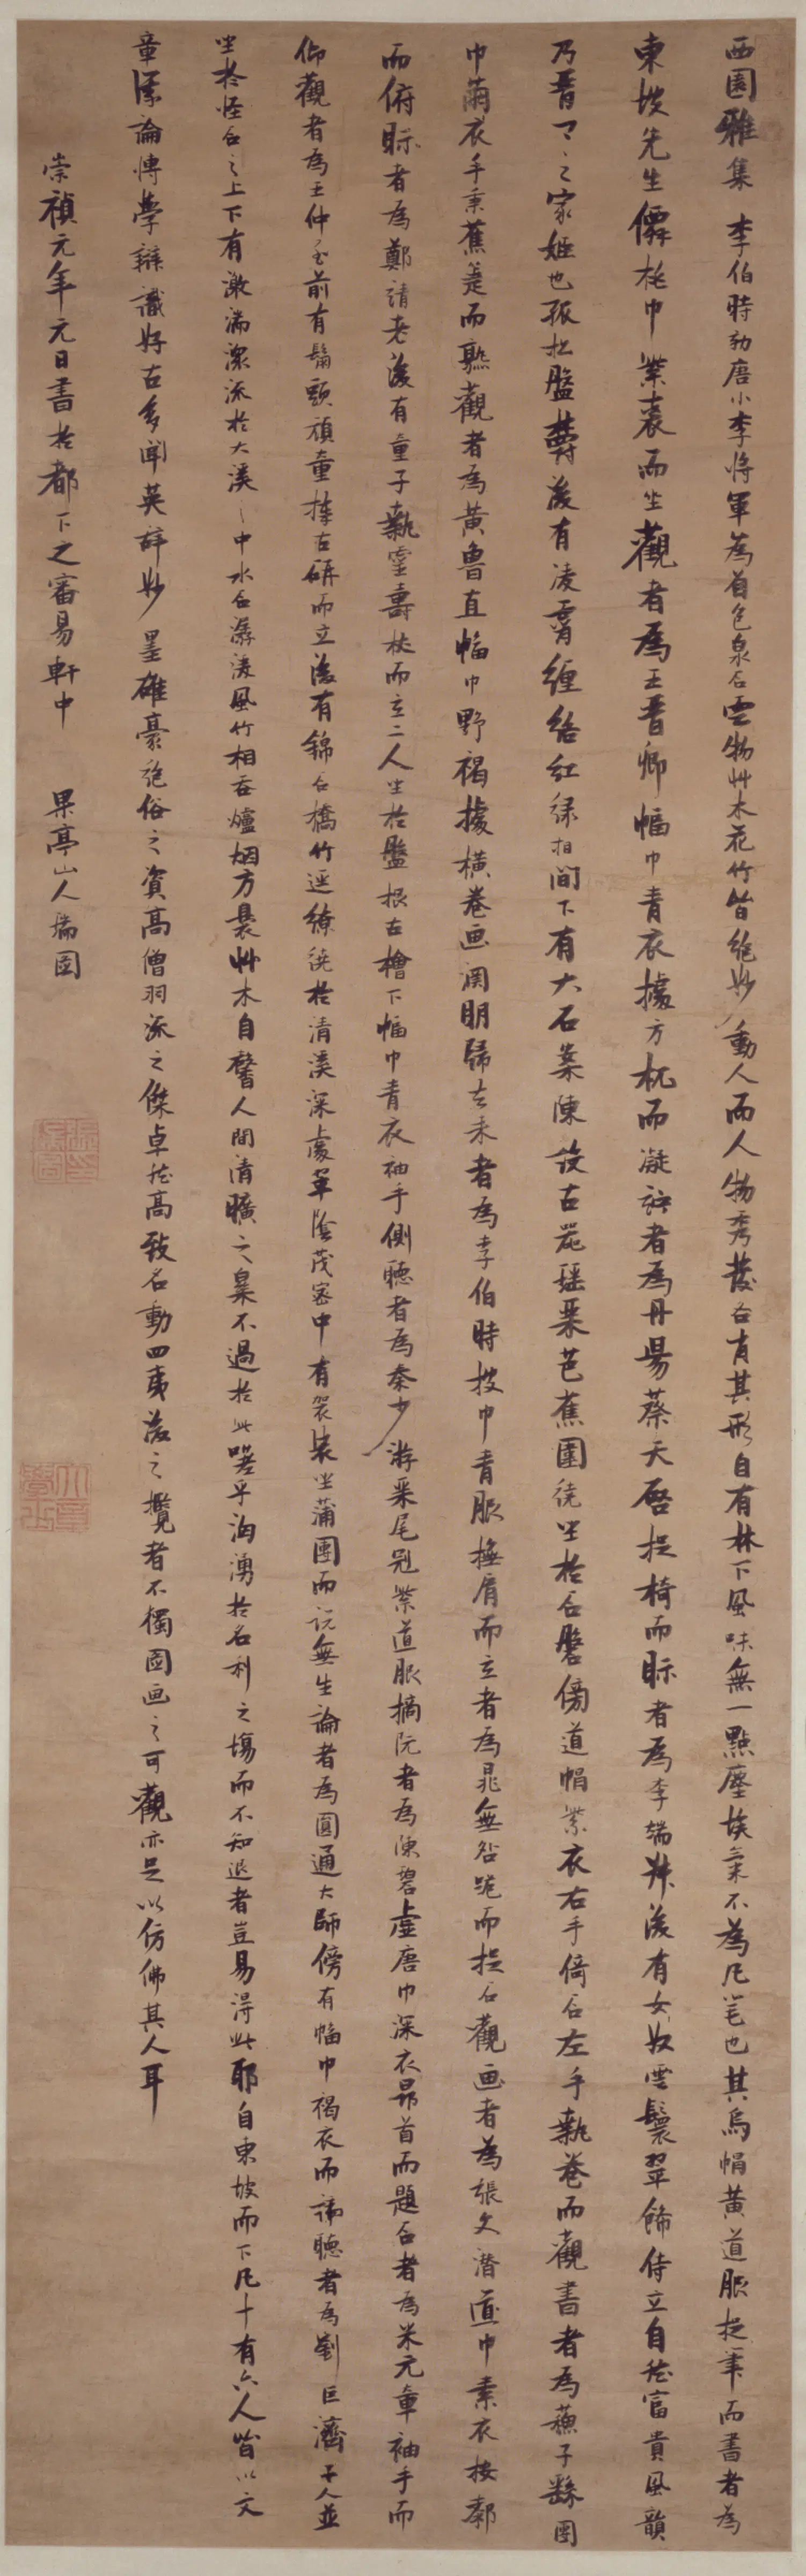 西園雅集 李伯時効唐小李將軍為着色泉石雲物艸木花竹皆絕妙動人而人物秀發各肖其形自有林下風味無一點塵埃氣不為凡筆也其烏帽黃道服捉筆而書者為
東坡先生僊桃巾紫裘而坐觀者為王晋卿幅巾青衣據方机而凝竚者為丹陽蔡天啓捉椅而眎者為李端叔後有女奴雲鬟翠飾侍立自然富貴風韻
乃晋卿之家姬也孤松盤欝後有凌霄纏絡紅綠相間下有大石案陳設古器瑶琴芭蕉圍繞坐於石磐傍道帽紫衣右手倚石左手執卷而觀書者為蘇子繇團
巾繭衣手秉蕉箑而熟觀者為黃魯直幅巾野褐據橫卷画淵明歸去來者為李伯時披巾青服撫肩而立者為晁無咎跪而捉石觀画者為張文潛道巾素衣按䣛
而俯眎者為鄭靖老後有童子執靈壽杖而立二人坐於盤根古檜下幅巾青衣袖手側聽者為秦少游琴尾冠紫道服摘阮者為陳碧虛唐巾深衣昻首而題石者為米元章袖手而
仰觀者為王仲至前有鬅頭頑童捧古硯而立後有錦石橋竹逕繚繞於清溪深處翠陰茂密中有袈裟坐蒲團而說無生論者為圓通大師傍有幅巾褐衣而諦聽者為劉巨濟二人並
坐於怪石之上下有激湍潀流於大溪之中水石潺湲風竹相吞爐烟方裊艸木自馨人間清曠之樂不過於此嗟乎洶湧於名利之塲而不知退者豈易得此耶自東坡而下凡十有六人皆以文
章議論愽學辯識好古多聞英辭妙墨雄豪絕俗之資高僧羽流之傑卓然高致名動四夷後之攬者不獨圖画之可觀亦足以仿佛其人耳
崇禎元年元日書於都下之審易軒中 果亭山人瑞圖